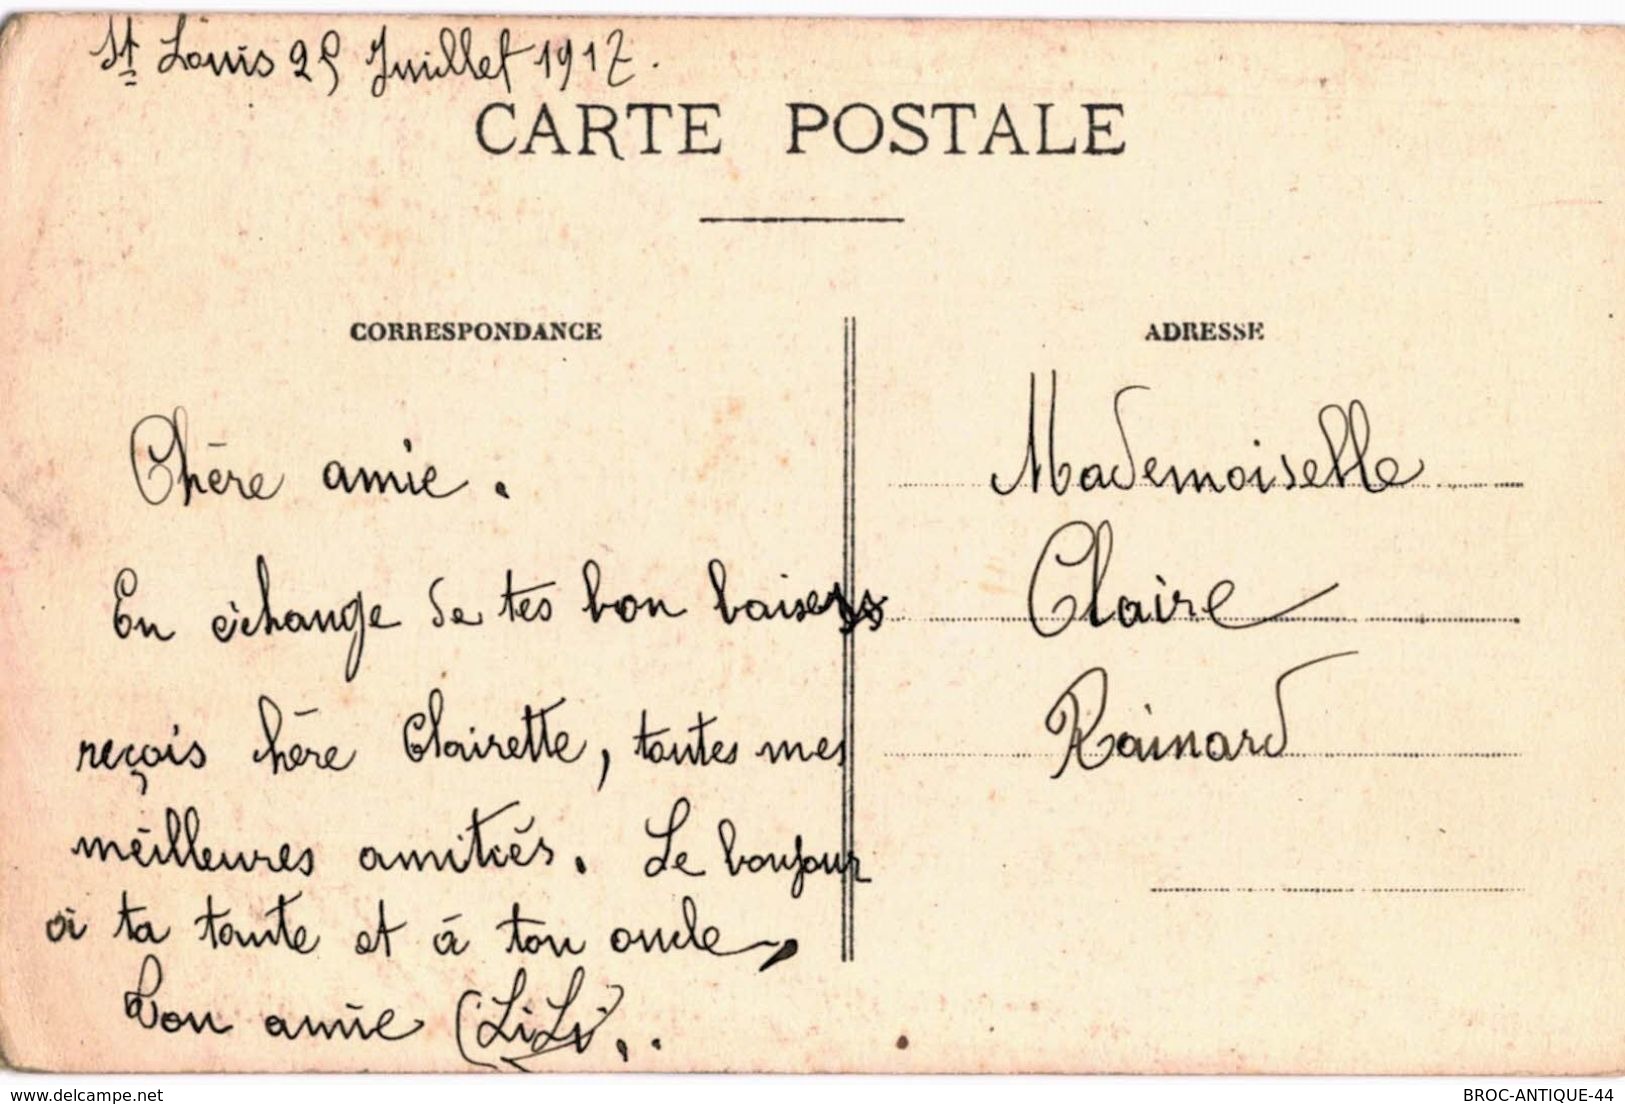 St Louis 25 Juillet 1917.
CARTE POSTALE
CORRESPONDANCE
Chère amie.
En échange de tes bon baisers
reçois hère Clairette, toutes mes
méilleures amitiés. Le bonjour
à ta tante et à ton oncle,
Bon amie (LiLi)..
ADRESSE
Mademoiselle
Claire
Rainard
delcampe.net
BROC-ANTIQUE-44